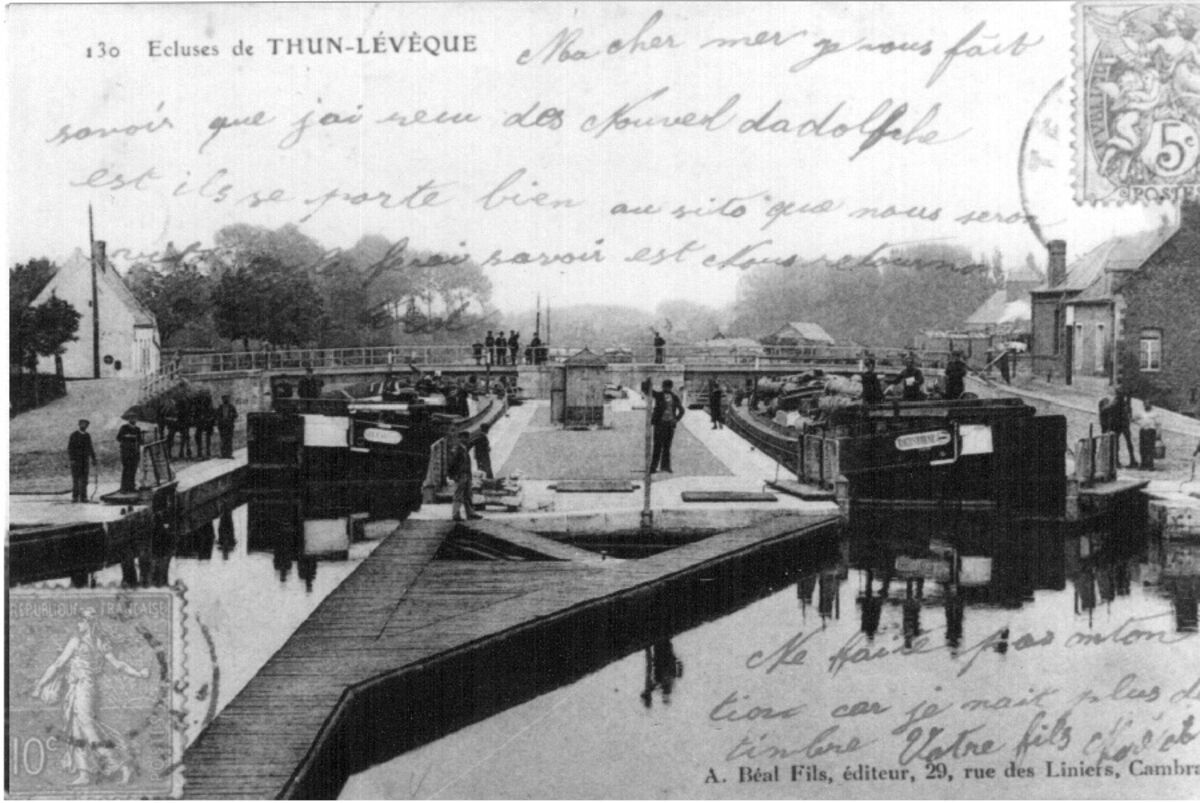 130 Ecluses de THUN-LÉVÊQUE
Ma cher mer je vous fait
savoir que j'ai recu des Nouvel dadolphe
est ils se porte bien au sito que nous seron
ferai savoir est Nous retourno
5c
POSTE
REPUBLIQUE FRANÇAISE
10c
Ne faite pas
tion car je nait plus d
timbre Votre fils
A. Béal Fils, éditeur, 29, rue des Liniers, Cambra